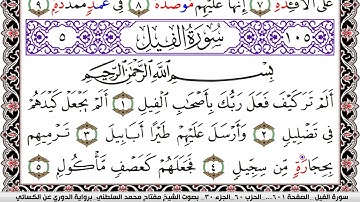 عَلَى ٱلْأَفْـِٔدَةِ ٧ إِنَّهَا عَلَيْهِم مُّوصَدَةٌ ٨ فِي عَمَدٍ مُّمَدَّدَةٍ ٩
٥ سُورَةُ الْفِيلِ ١٠٥
بِسْمِ ٱللَّهِ ٱلرَّحْمَٰنِ ٱلرَّحِيمِ
أَلَمْ تَرَ كَيْفَ فَعَلَ رَبُّكَ بِأَصْحَٰبِ ٱلْفِيلِ ١ أَلَمْ يَجْعَلْ كَيْدَهُمْ
فِي تَضْلِيلٍ ٢ وَأَرْسَلَ عَلَيْهِمْ طَيْرًا أَبَابِيلَ ٣ تَرْمِيهِم
بِحِجَارَةٍ مِّن سِجِّيلٍ ٤ فَجَعَلَهُمْ كَعَصْفٍ مَّأْكُولٍ ٥
سورة الفيل الصفحة ٦٠١... الحزب ٦٠ الجزء ٣٠ بصوت الشيخ مفتاح محمد السلطني برواية الدوري عن الكسائي